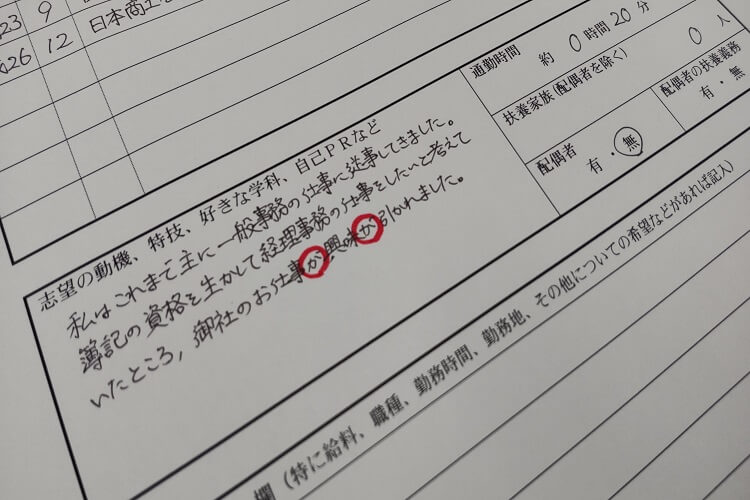 23 9
日本商工
26 12
通勤時間
約 0 時間 20 分
扶養家族(配偶者を除く)
0 人
配偶者
有・無
配偶者の扶養義務
有・無
志望の動機、特技、好きな学科、自己PRなど
私はこれまで主に一般事務の仕事に従事してきました。
簿記の資格を生かして経理事務の仕事をしたいと考えて
いたところ、御社のお仕事が興味が引かれました。
欄(特に給料、職種、勤務時間、勤務地、その他についての希望などがあれば記入)